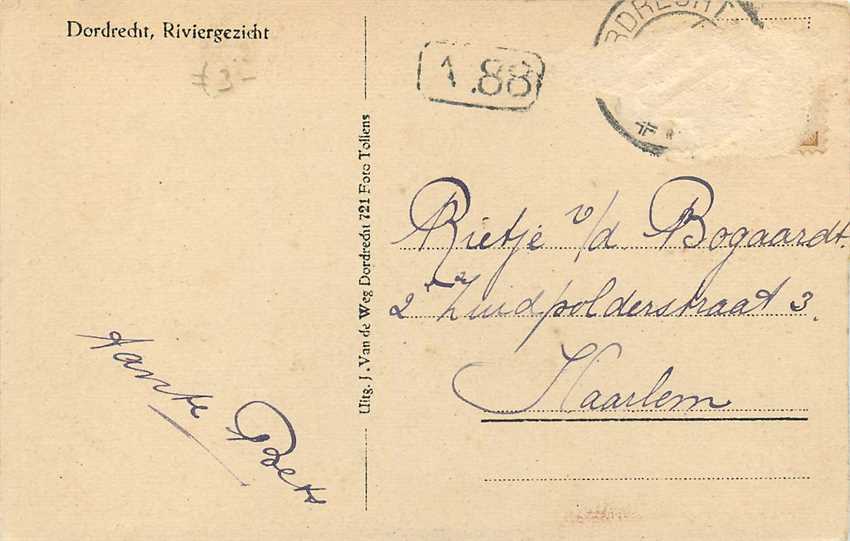 Dordrecht, Riviergezicht
f 3-
1.88
DORDRECHT
Uitg. J. Van de Weg Dordrecht 721 Foto Tollens
Rietje v/d Bogaardt.
2e Zuidpolderstraat 3.
Haarlem
Tante